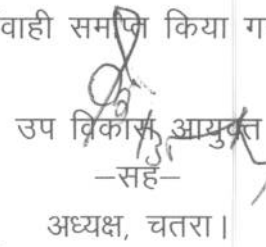 वाही समाप्त किया ग
उप विकास आयुक्त
–सह–
अध्यक्ष, चतरा।